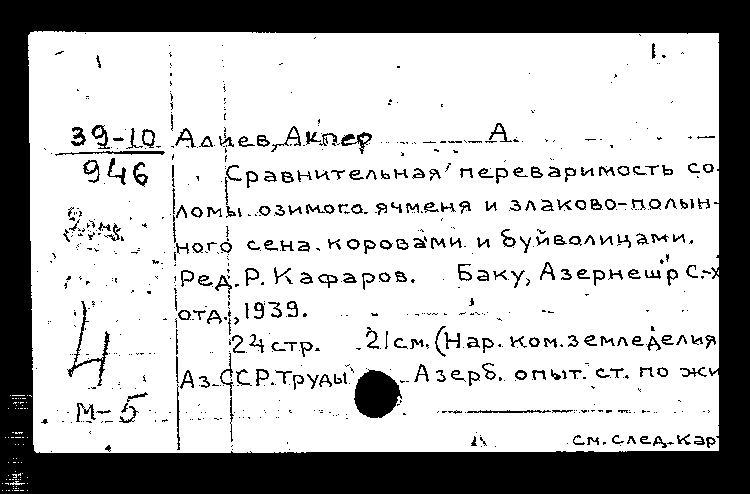 1.
39-10 Алиев, Акпер А.
946 Сравнительная переваримость со-
ломы озимого ячменя и злаково-полын-
ного сена коровами и буйволицами.
Ред. Р. Кафаров. Баку, Азернешр с.-х
отд., 1939.
24 стр. 21 см. (Нар. ком. земледелия
4
Аз.ССР. Труды Азерб. опыт. ст. по жи
М-5
см. след. кар